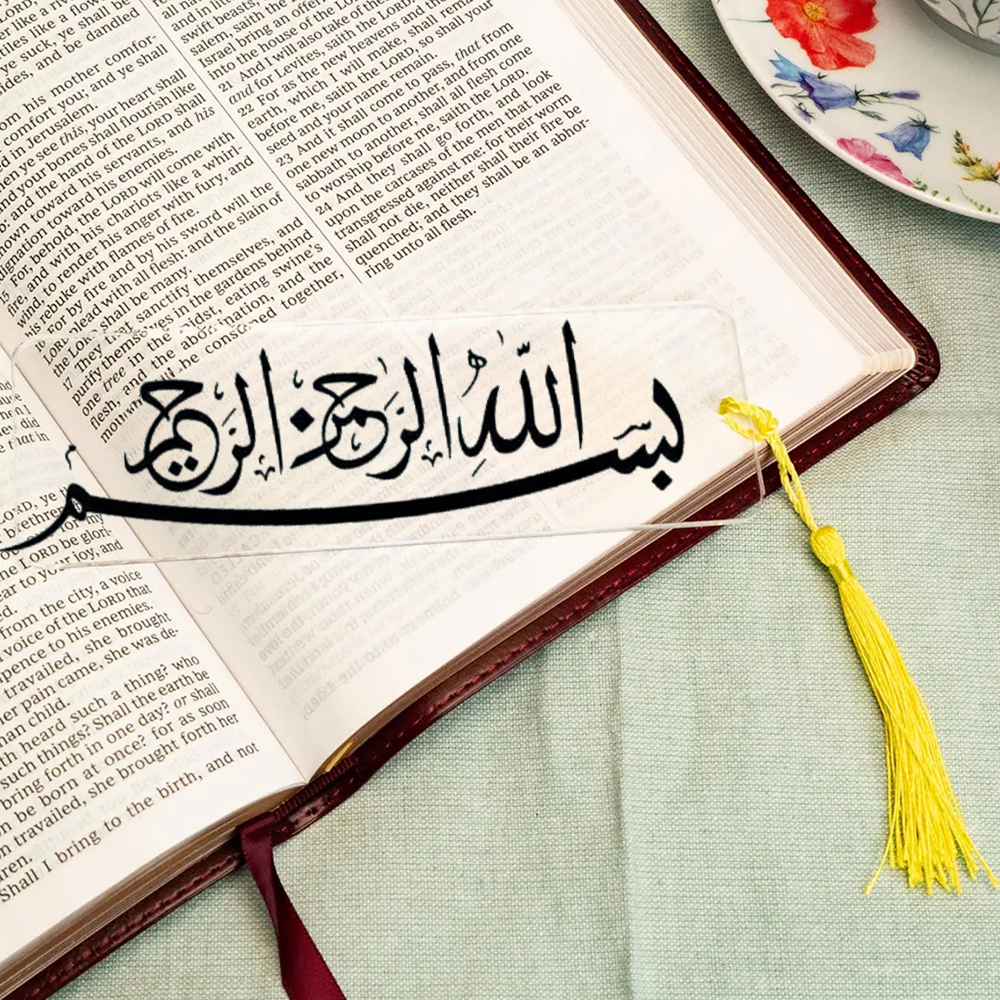 ye suck, ye shall be
and be dandled
his mother comfor-
you; and ye shall
in Jerusalem.
ye see this, your heart shall
your bones shall flourish like
the hand of the LORD shall
toward his servants, and his
toward his enemies.
For, behold, the LORD will come with
and with his chariots like a whirl-
wind, to render his anger with fury, and
his rebuke with flames of fire.
For by fire and by his sword will the
LORD plead with all flesh: and the slain of
the LORD shall be many.
17 They sanctify themselves, and
purify in the gardens behind
one tree in the midst, eating swine's
flesh, and the abomination, and the
be consumed together,
swift beasts
salem, saith the LORD
Israel bring an offering
into the house of the LORD.
21 And I will also take
and for Levites, saith the LORD.
22 For as the new heavens and the new
earth, which I will make, shall remain
before me, saith the LORD, so shall your
seed and your name remain.
23 And it shall come to pass, that from
one new moon to another, and from one
sabbath to another, shall all flesh come
to worship before me, saith the LORD.
24 And they shall go forth, and look
upon the carcases of the men that have
transgressed against me: for their worm
shall not die, neither shall their fire be
quenched; and they shall be an abhor-
ring unto all flesh.
بسم الله الرحمن الرحيم
LORD be glori-
to your joy, and
from the city, a voice
voice of the LORD that
to his enemies.
travailed, she brought
pain came, she was de-
child.
heard such a thing? who
such things? Shall the earth be
bring forth in one day? or shall
be born at once? for as soon
travailed, she brought forth her
Shall I bring to the birth, and not